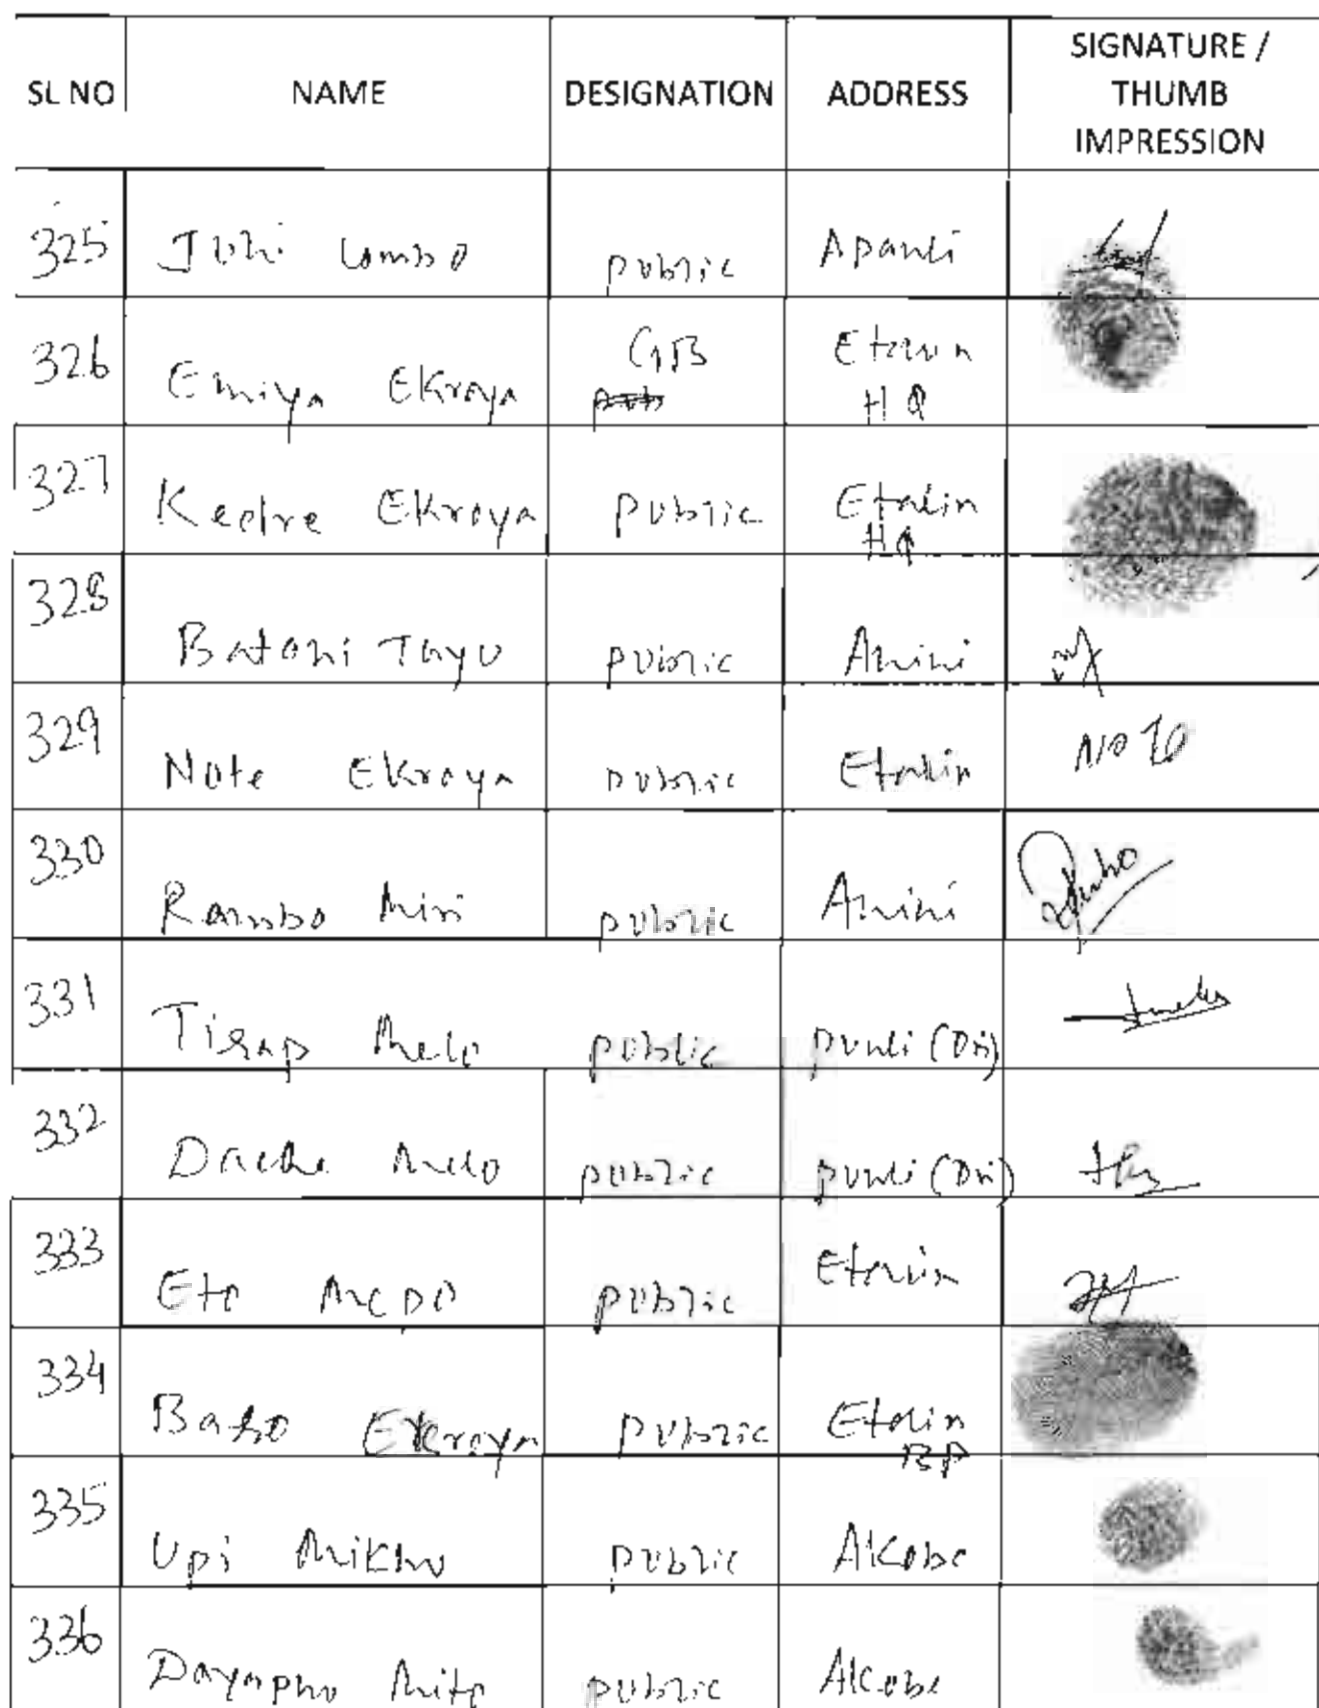 SL NO NAME DESIGNATION ADDRESS SIGNATURE / THUMB IMPRESSION
325 Juhi Lombo public Apanli
326 Emiya Ekroya GB Etalin HQ
327 Kedre Ekroya public Etalin HQ
328 Batohi Tayu public Anini
329 Note Ekroya public Etalin
330 Rambo Miri public Anini
331 Tirap Melo public Punli (Dri)
332 Melo public Punli (Dri)
333 Eto Mepo public Etalin
334 Baho Ekroya public Etalin BP
335 Upi Mikhu public Akobe
336 Dayaphu Mito public Akobe